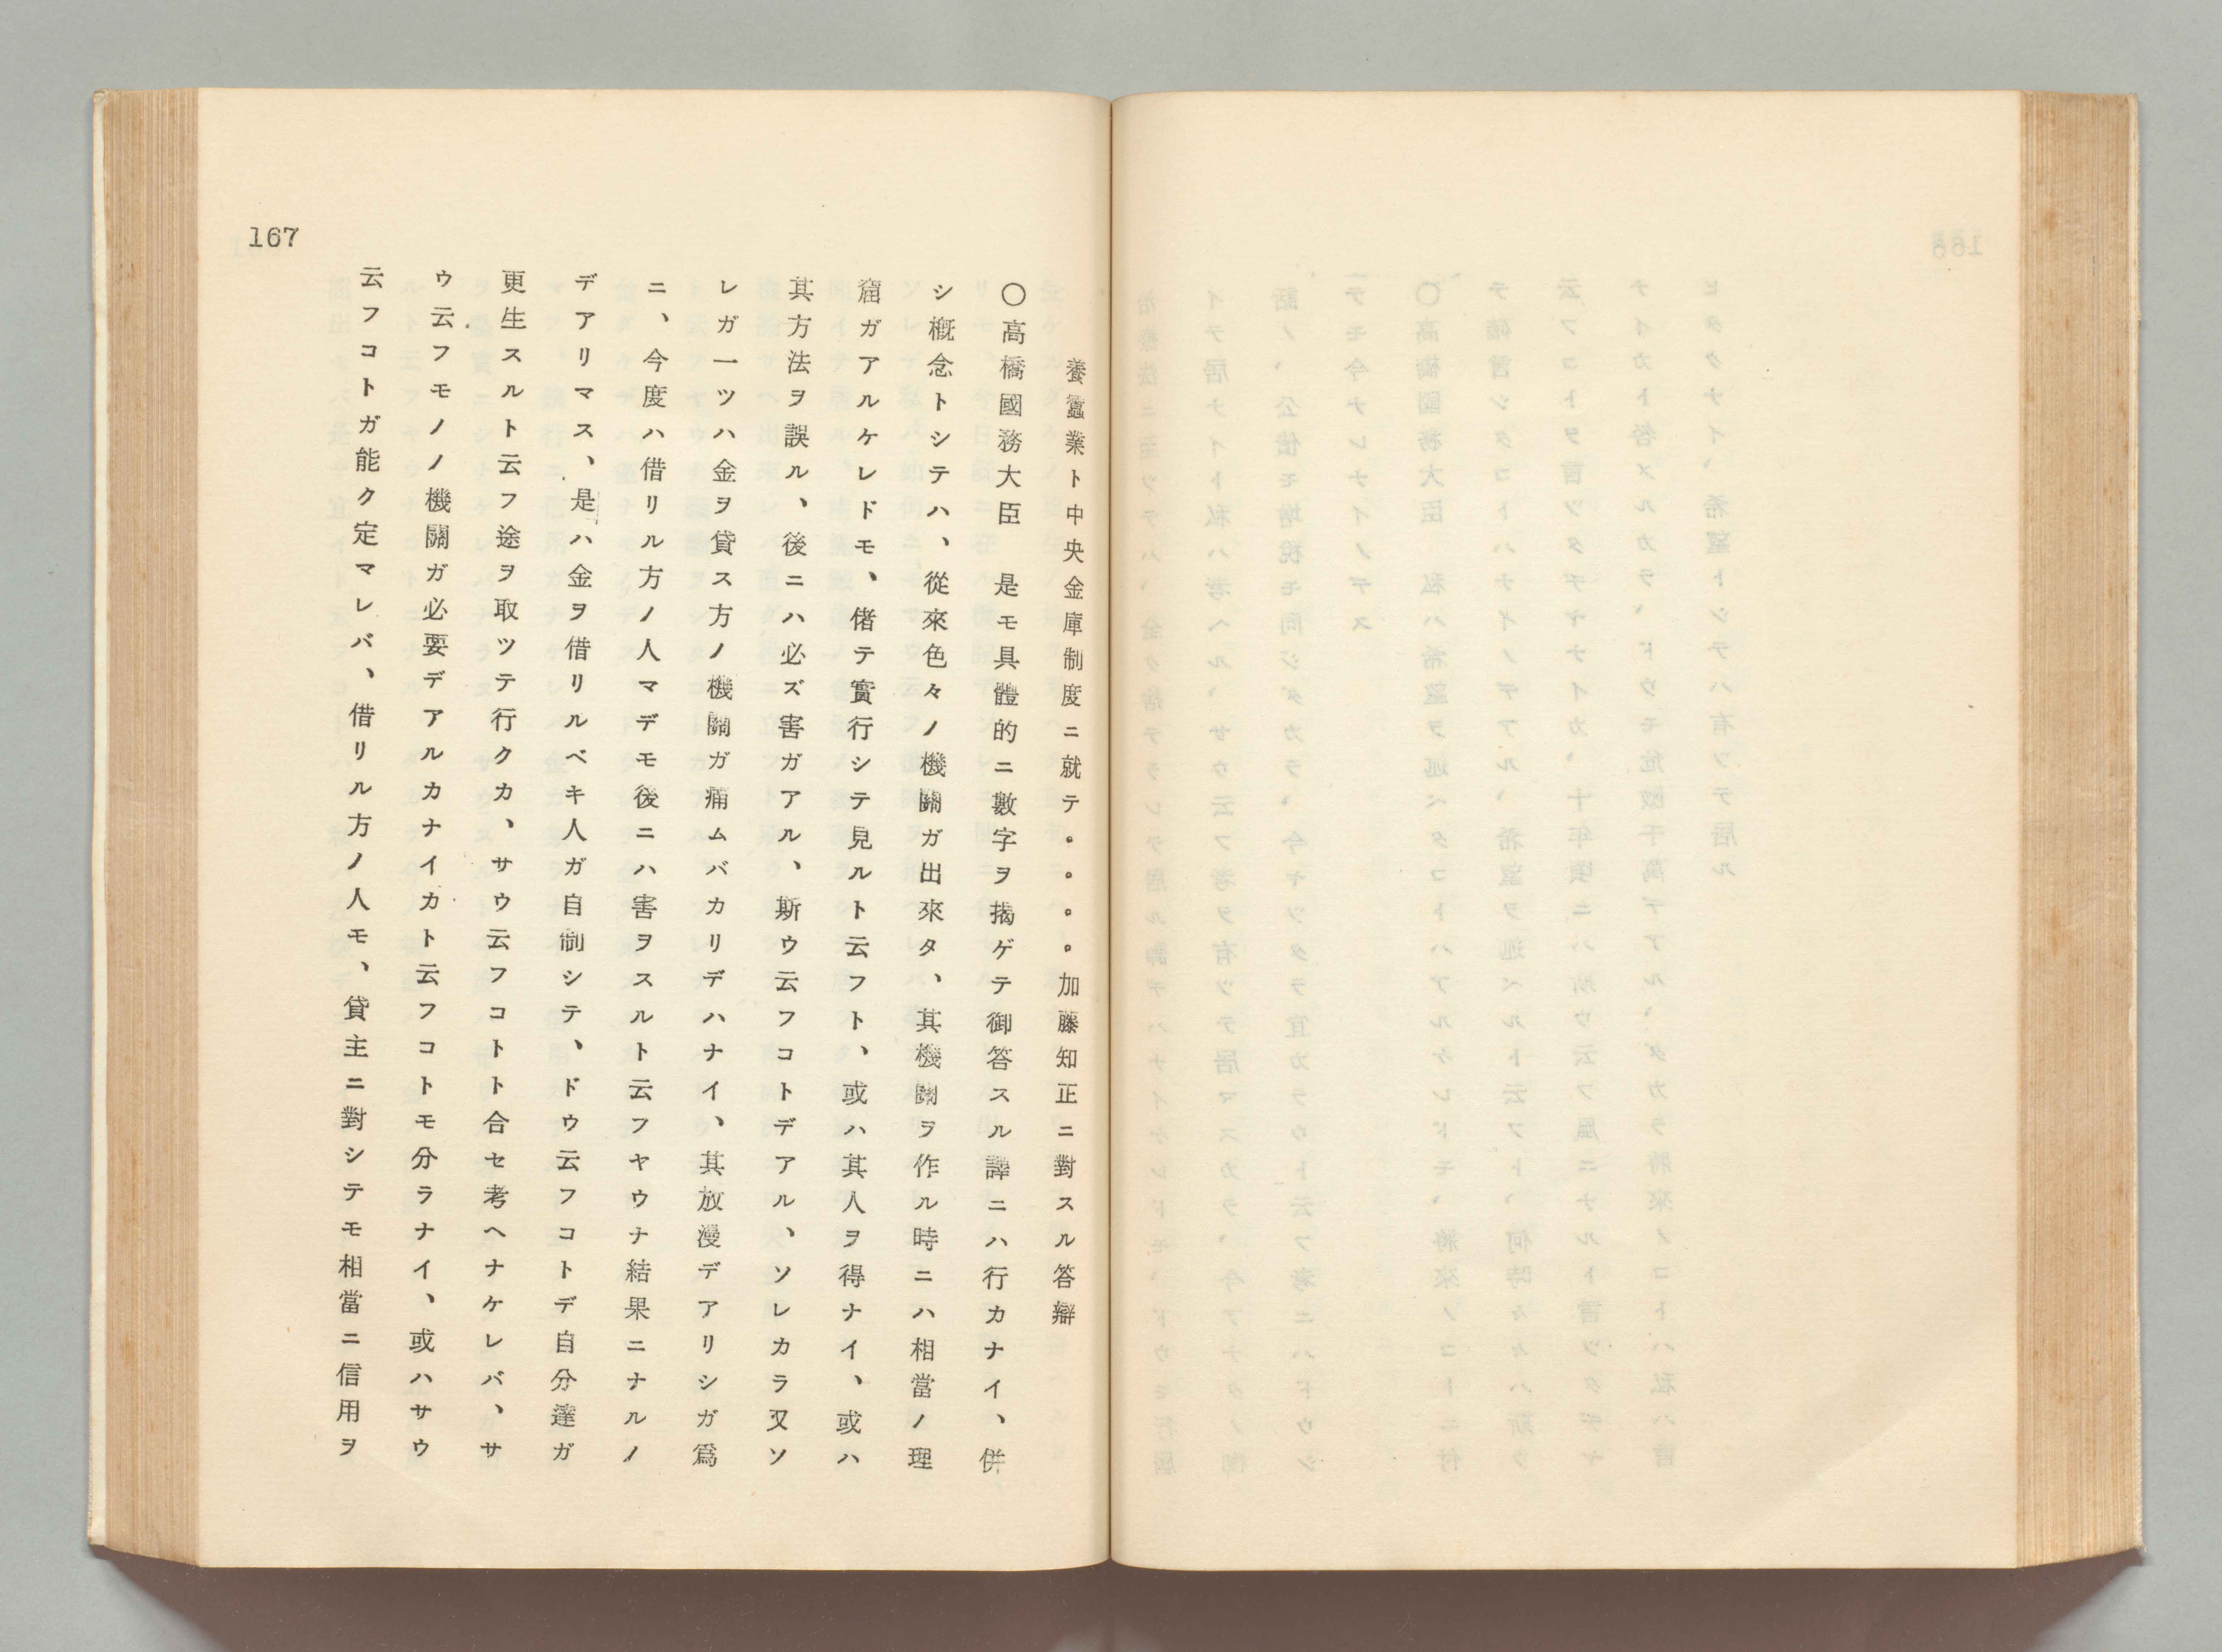 養蠶業ト中央金庫制度ニ就テ。。。。加藤知正ニ對スル答辯
〇高橋國務大臣　是モ具體的ニ數字ヲ揭ゲテ御答スル譯ニハ行カナイ、併
シ槪念トシテハ、從來色々ノ機關ガ出來タ、其機關ヲ作ル時ニハ相當ノ理
窟ガアルケレドモ、偖テ實行シテ見ルト云フト、或ハ其人ヲ得ナイ、或ハ
其方法ヲ誤ル、後ニハ必ズ害ガアル、斯ウ云フコトデアル、ソレカラ又ソ
レガ一ツハ金ヲ貸ス方ノ機關ガ痛ムバカリデハナイ、其放漫デアリシガ爲
ニ、今度ハ借リル方ノ人マデモ後ニハ害ヲスルト云フヤウナ結果ニナルノ
デアリマス、是ハ金ヲ借リルベキ人ガ自制シテ、ドウ云フコトデ自分達ガ
更生スルト云フ途ヲ取ツテ行クカ、サウ云フコトト合セ考ヘナケレバ、サ
ウ云フモノノ機關ガ必要デアルカナイカト云フコトモ分ラナイ、或ハサウ
云フコトガ能ク定マレバ、借リル方ノ人モ、貸主ニ對シテモ相當ニ信用ヲ
167